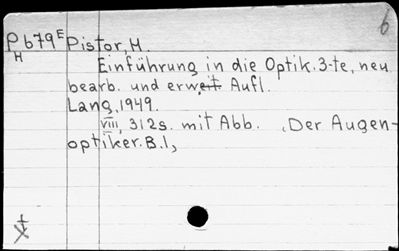 6
Pb679E Pistor, H.
H
Einführung in die Optik. 3-te, neu
bearb. und erweit Aufl.
Lang, 1949.
VIII, 312s. mit Abb. (Der Augen-
optiker. B.1,